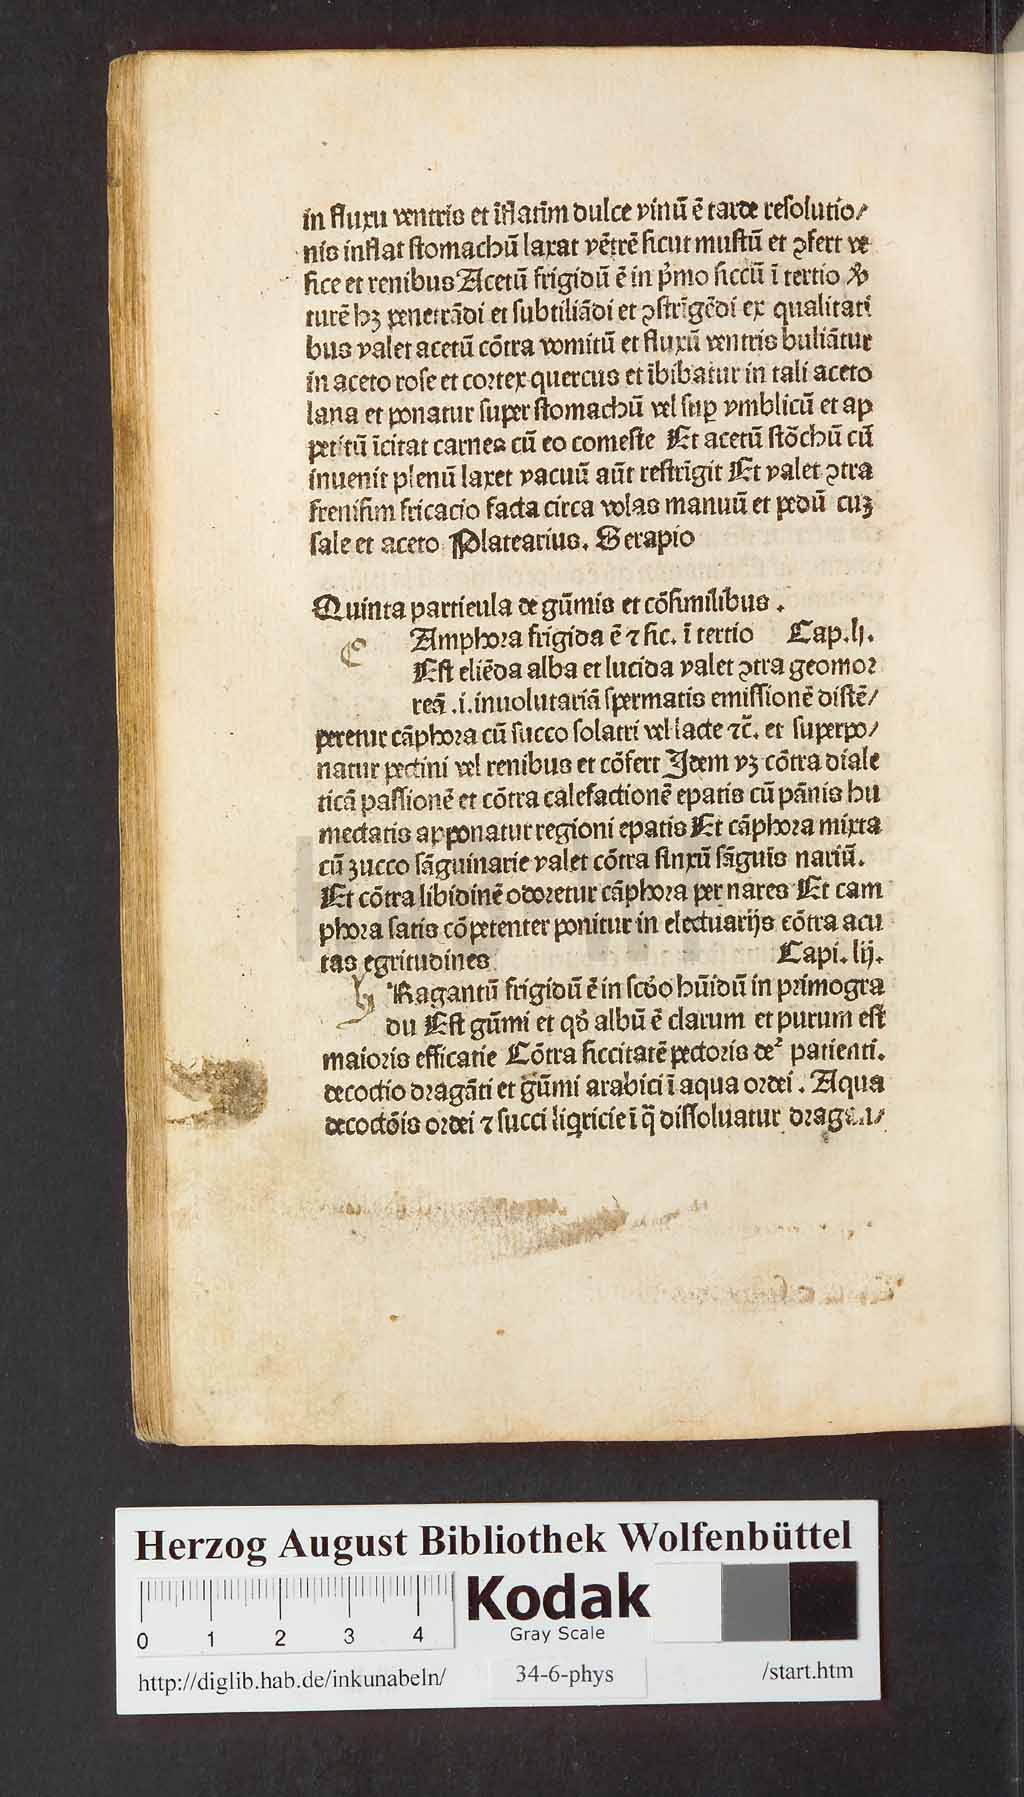 in fluxu ventris et īflatīm dulce vinū ē tarde resolutio/
nis inflat stomachū laxat vētrē sicut mustū et ꝯfert ve
sice et renibus Acetū frigidū ē in pͥmo siccū ī tertio
turē hꝫ penetrādi et subtiliādi et ꝯstrīgēdi ex qualitati
bus valet acetū cōtra vomitū et fluxū ventris buliātur
in aceto rose et cortex quercus et ībibatur in tali aceto
lana et ponatur super stomachū vel suꝑ vmblicū et ap
petitū īcitat carnes cū eo comeste Et acetū stōchū cū
inuenit plenū laxet vacuū aūt restrīgit Et valet ꝯtra
frenisim fricacio facta circa volas manuū et pedū cuꝫ
sale et aceto Platearius. Serapio
Quinta particula de gūmis et cōsimilibus .
c Amphora frigida ē ⁊ sic. ī tertio Cap.lj.
Est eliēda alba et lucida valet ꝯtra geomor
reā .i. inuolutariā spermatis emissionē distē/
peretur cāphora cū succo solatri vel lacte ⁊c̄. et superpo/
natur pectini vel renibus et cōfert Idem vꝫ cōtra diale
ticā passionē et cōtra calefactionē epatis cū pānis hu
mectatis apponatur regioni epatis Et cāphora mixta
cū zucco sāguinarie valet cōtra finxū sāguīs nariū.
Et cōtra libidinē odoretur cāphora per nares Et cam
phora satis cōpetenter ponitur in electuarijs cōtra acu
tas egritudines Capi. lij.
Ragantū frigidū ē in scd̄o hūidū in primo gra
du Est gūmi et qd̄ albū ē clarum et purum est
maioris efficatie Cōtra siccitatē pectoris deꝰ patienti.
decoctio dragāti et gūmi arabici ī aqua ordei . Aqua
decoctōis ordei ⁊ succi liqͥricie ī q̄ dissoluatur dragan/
Herzog August Bibliothek Wolfenbüttel
0 1 2 3 4
Kodak
Gray Scale
http://diglib.hab.de/inkunabeln/ 34-6-phys /start.htm